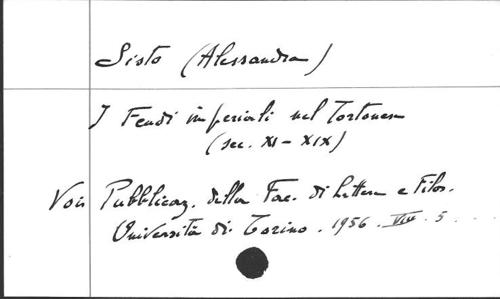 Sisto (Alessandra)
I Feudi imperiali nel Tortonese
(sec. XI - XIX)
Voir Pubblicaz. della Fac. di Lettere e Filos.
Università di Torino. 1956. VIII. 5